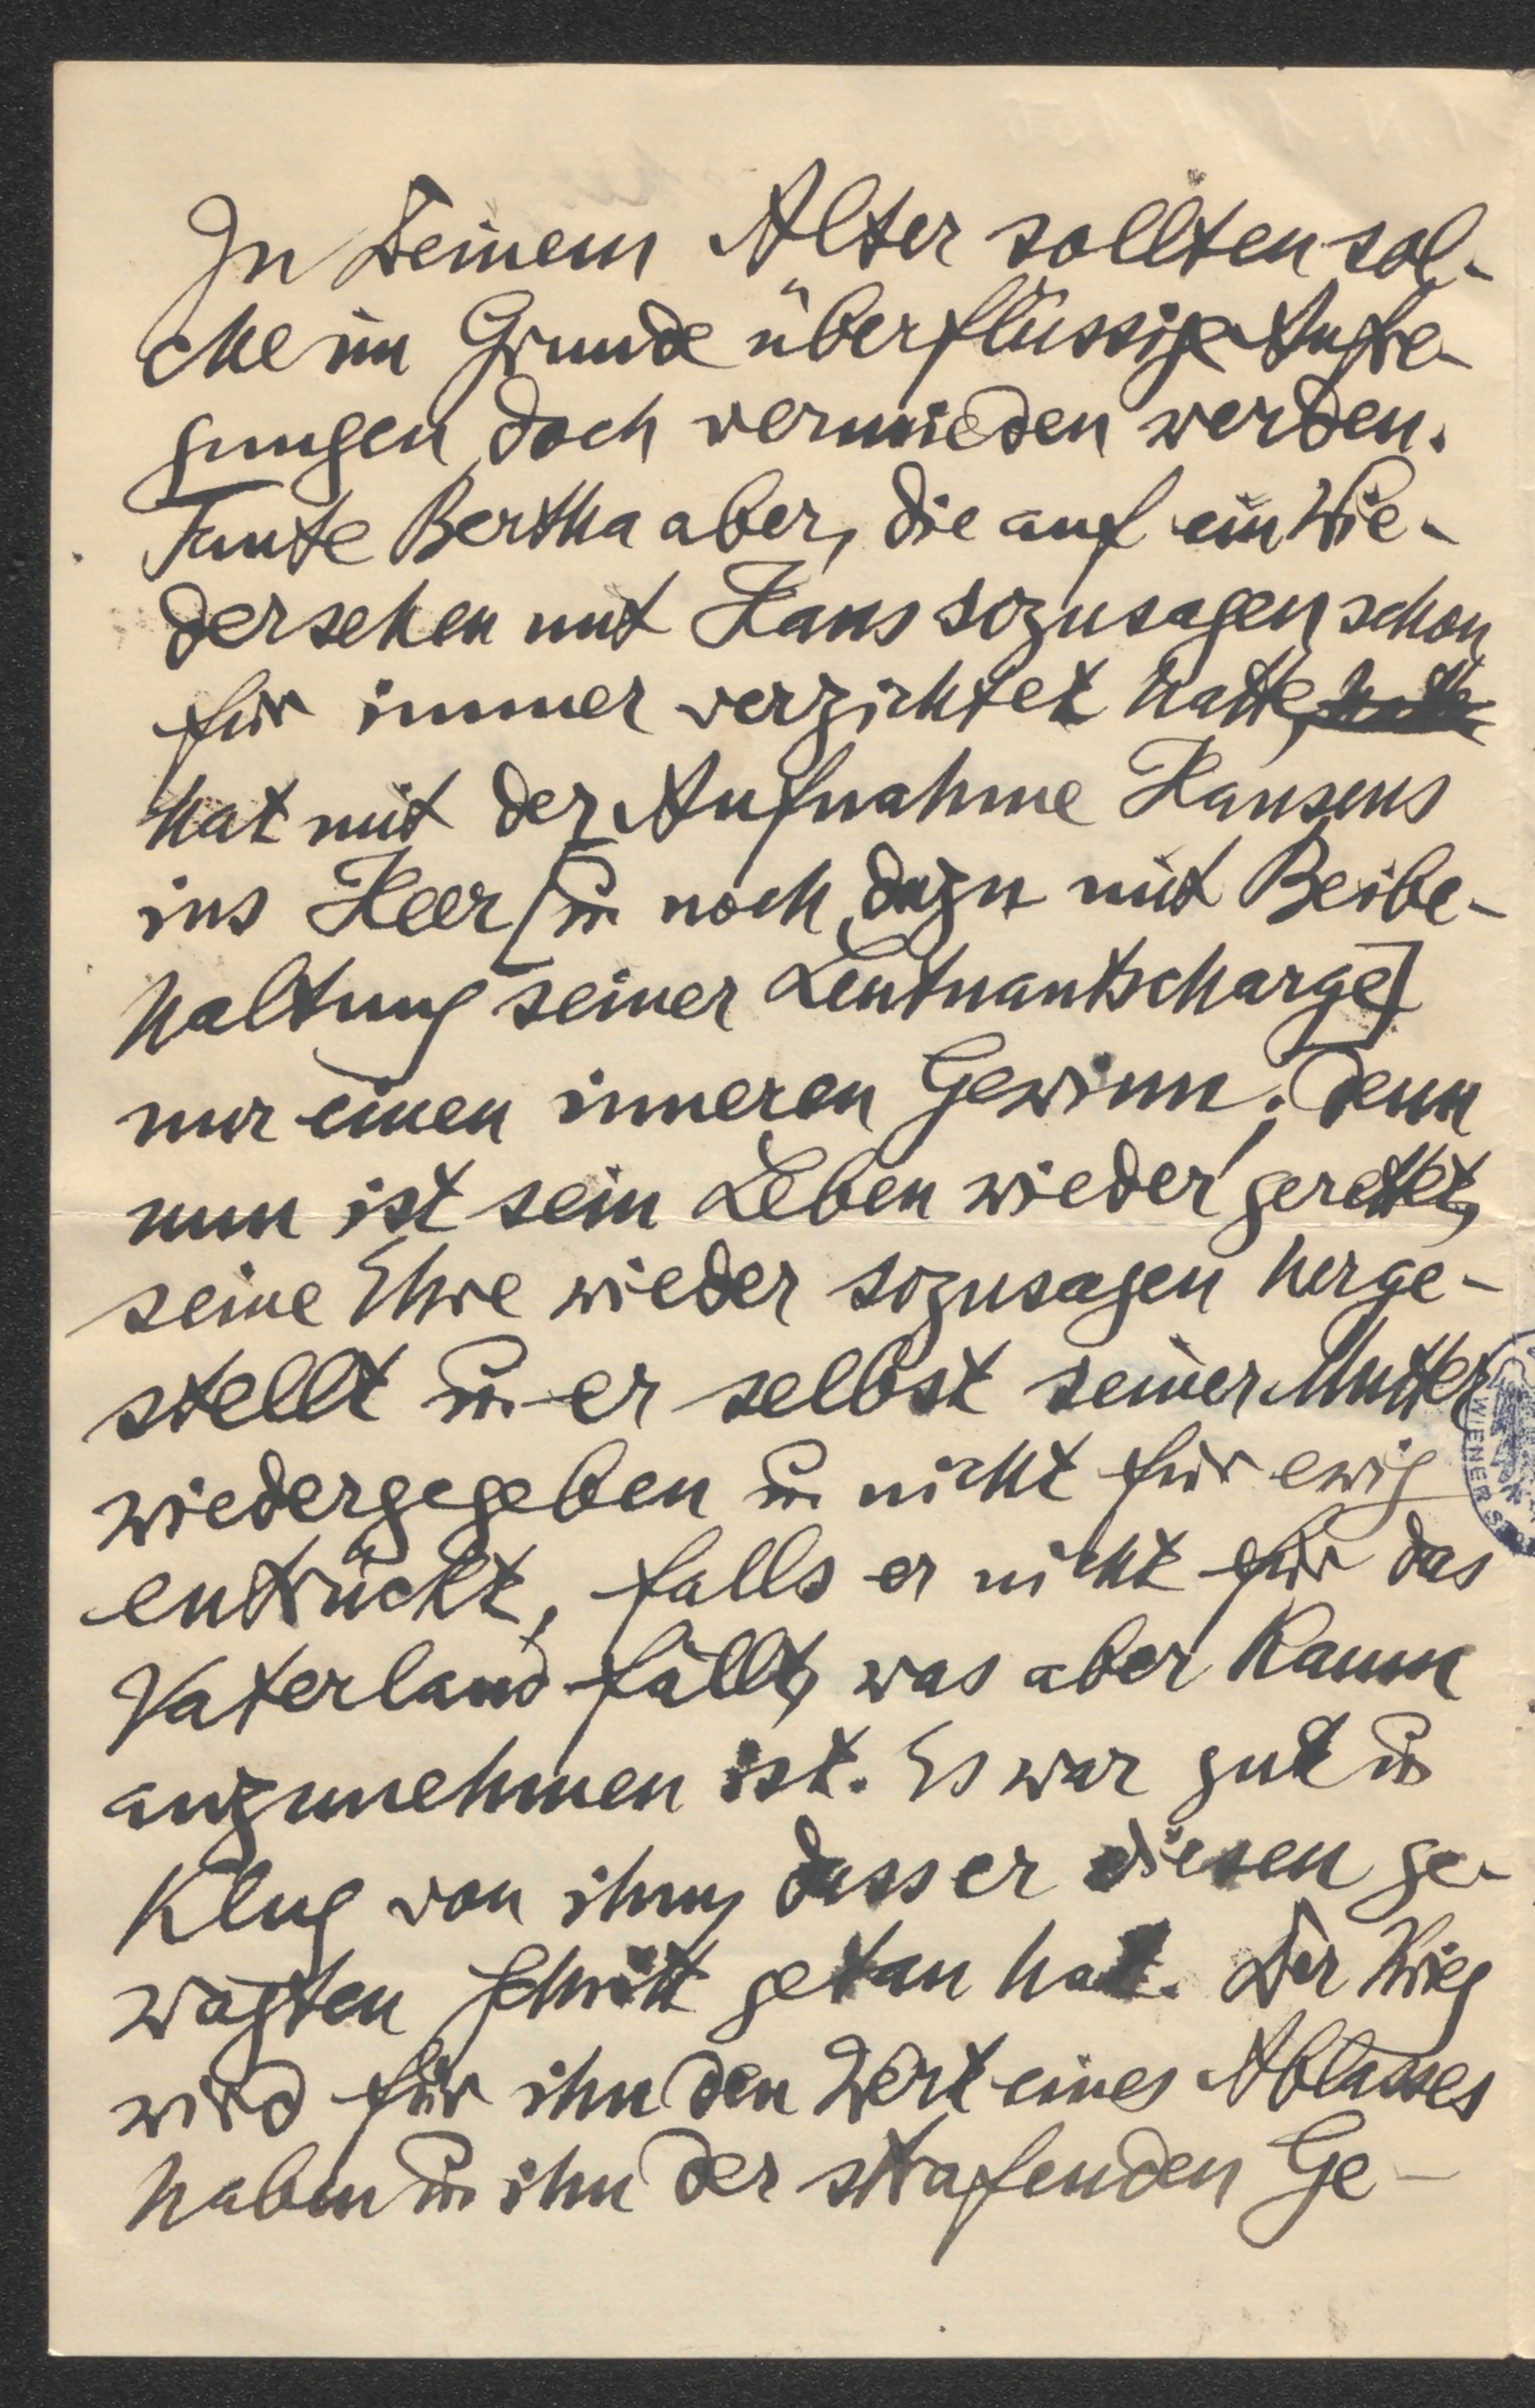 In Deinem Alter sollten sol-
che im Grunde überflüssige Aufre-
gungen doch vermieden werden.
Tante Bertha aber, die auf ein Wie-
dersehen mit Hans sozusagen schon
für immer verzichtet hatte, hatte
hat mit der Aufnahme Hansens
ins Heer [u. noch dazu mit Beibe-
haltung seiner Leutnantscharge]
nur einen inneren Gewinn; denn
nun ist sein Leben wieder gerettet,
seine Ehre wieder sozusagen herge-
stellt u. er selbst seiner Mutter
wiedergegeben u. nicht für ewig
entrückt, falls er nicht für das
Vaterland fällt, was aber kaum
anzunehmen ist. Es war gut u.
klug von ihm, dass er diesen ge-
wagten Schritt getan hat. Der Krieg
wird für ihn den Wert eines Ablasses
haben u. ihn der strafenden Ge-
WIENER